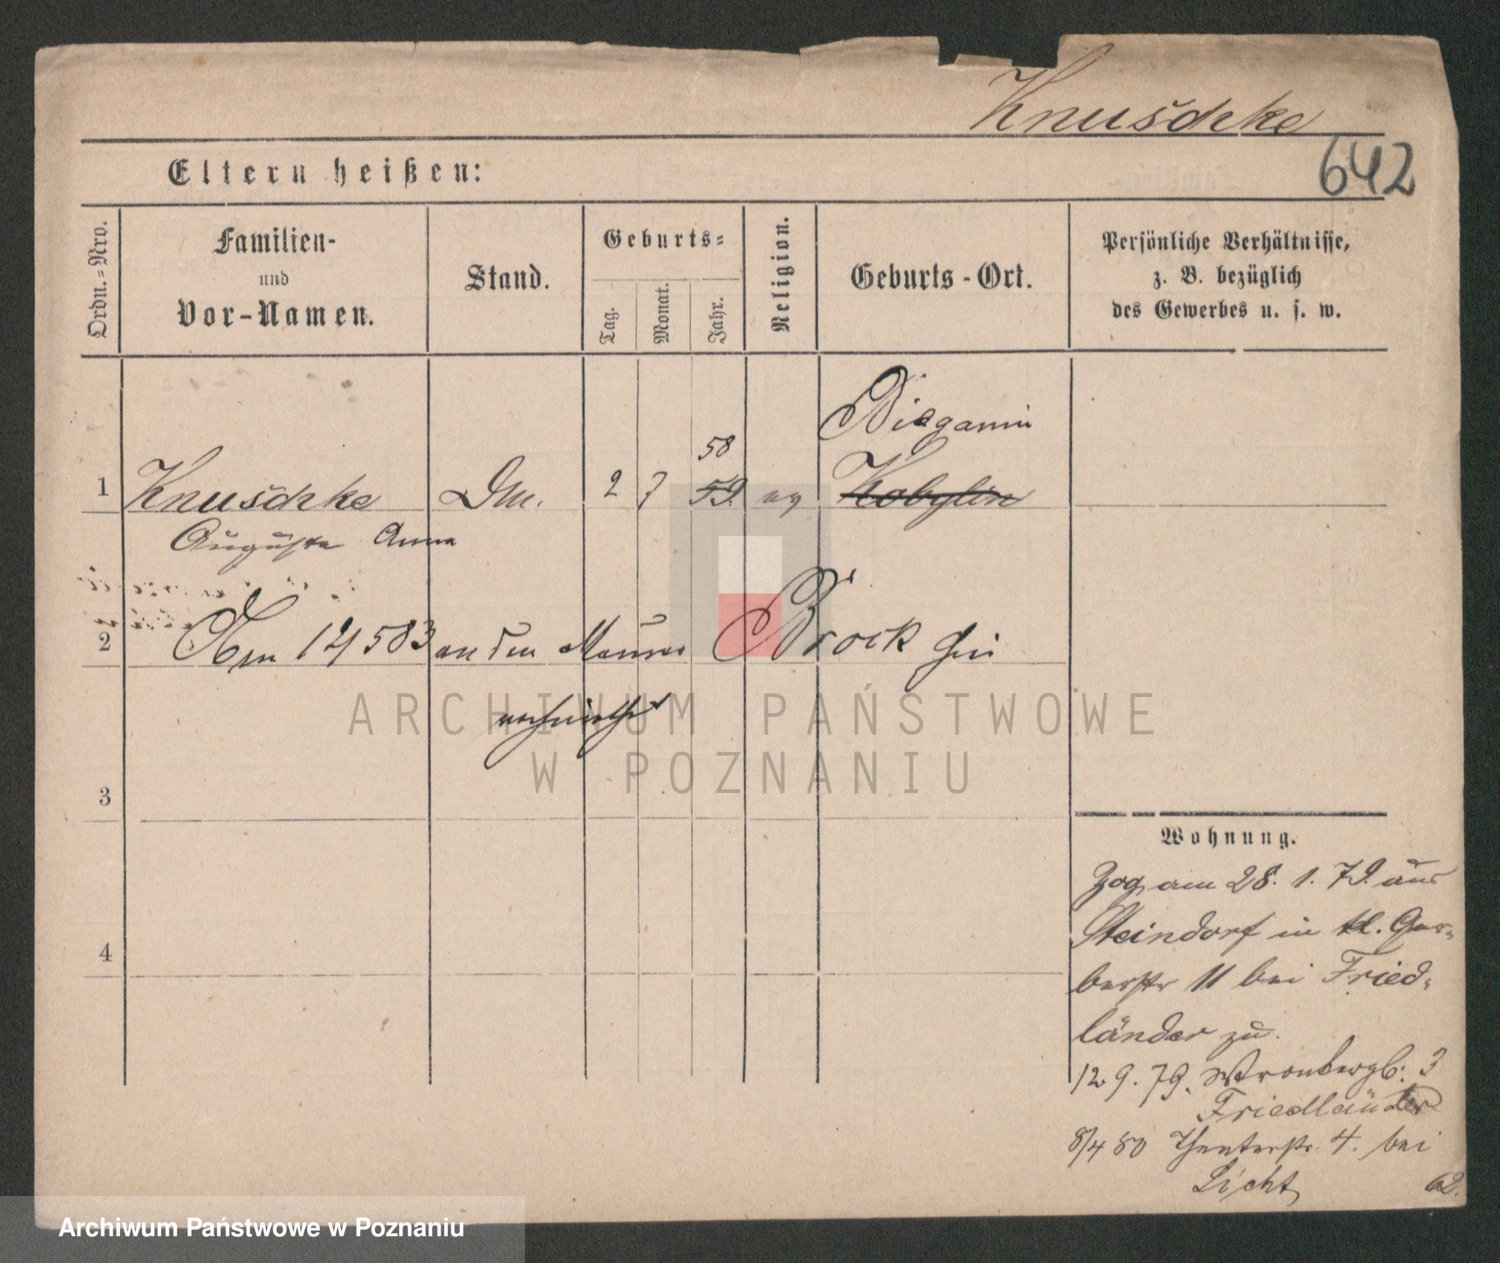 Knuschke
642
Eltern heißen:
Ordn.-Nro.
Familien-
und
Vor-Namen.
Stand.
Geburts-
Tag.
Monat.
Jahr.
Religion.
Geburts-Ort.
Persönliche Verhältnisse,
z. B. bezüglich
des Gewerbes u. s. w.
58
1 Knuschke 2 7 59. ev Kobylin
Auguste Anna
2 an den Maurer Brock hier
verheirathet
3
4
Wohnung.
Zog am 28. 1. 79. aus
Steindorf in kl. Ger-
berstr 11 bei Fried-
länder zu.
12 9. 79. Wronkerpl: 3
Friedländer
8/4 80 Theaterstr 4. bei
Licht
62.
ARCHIWUM PAŃSTWOWE
W POZNANIU
Archiwum Państwowe w Poznaniu